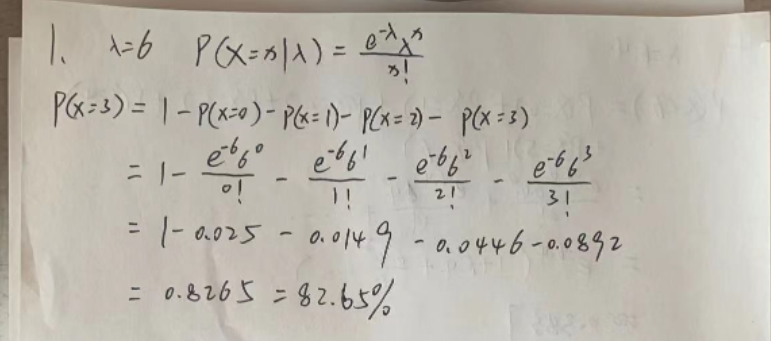 1. λ=6 P(X=x|λ) = e^-λ λ^x / x!
P(X=3) = 1 - P(X=0) - P(X=1) - P(X=2) - P(X=3)
= 1 - e^-6 6^0 / 0! - e^-6 6^1 / 1! - e^-6 6^2 / 2! - e^-6 6^3 / 3!
= 1 - 0.025 - 0.0149 - 0.0446 - 0.0892
= 0.8265 = 82.65%